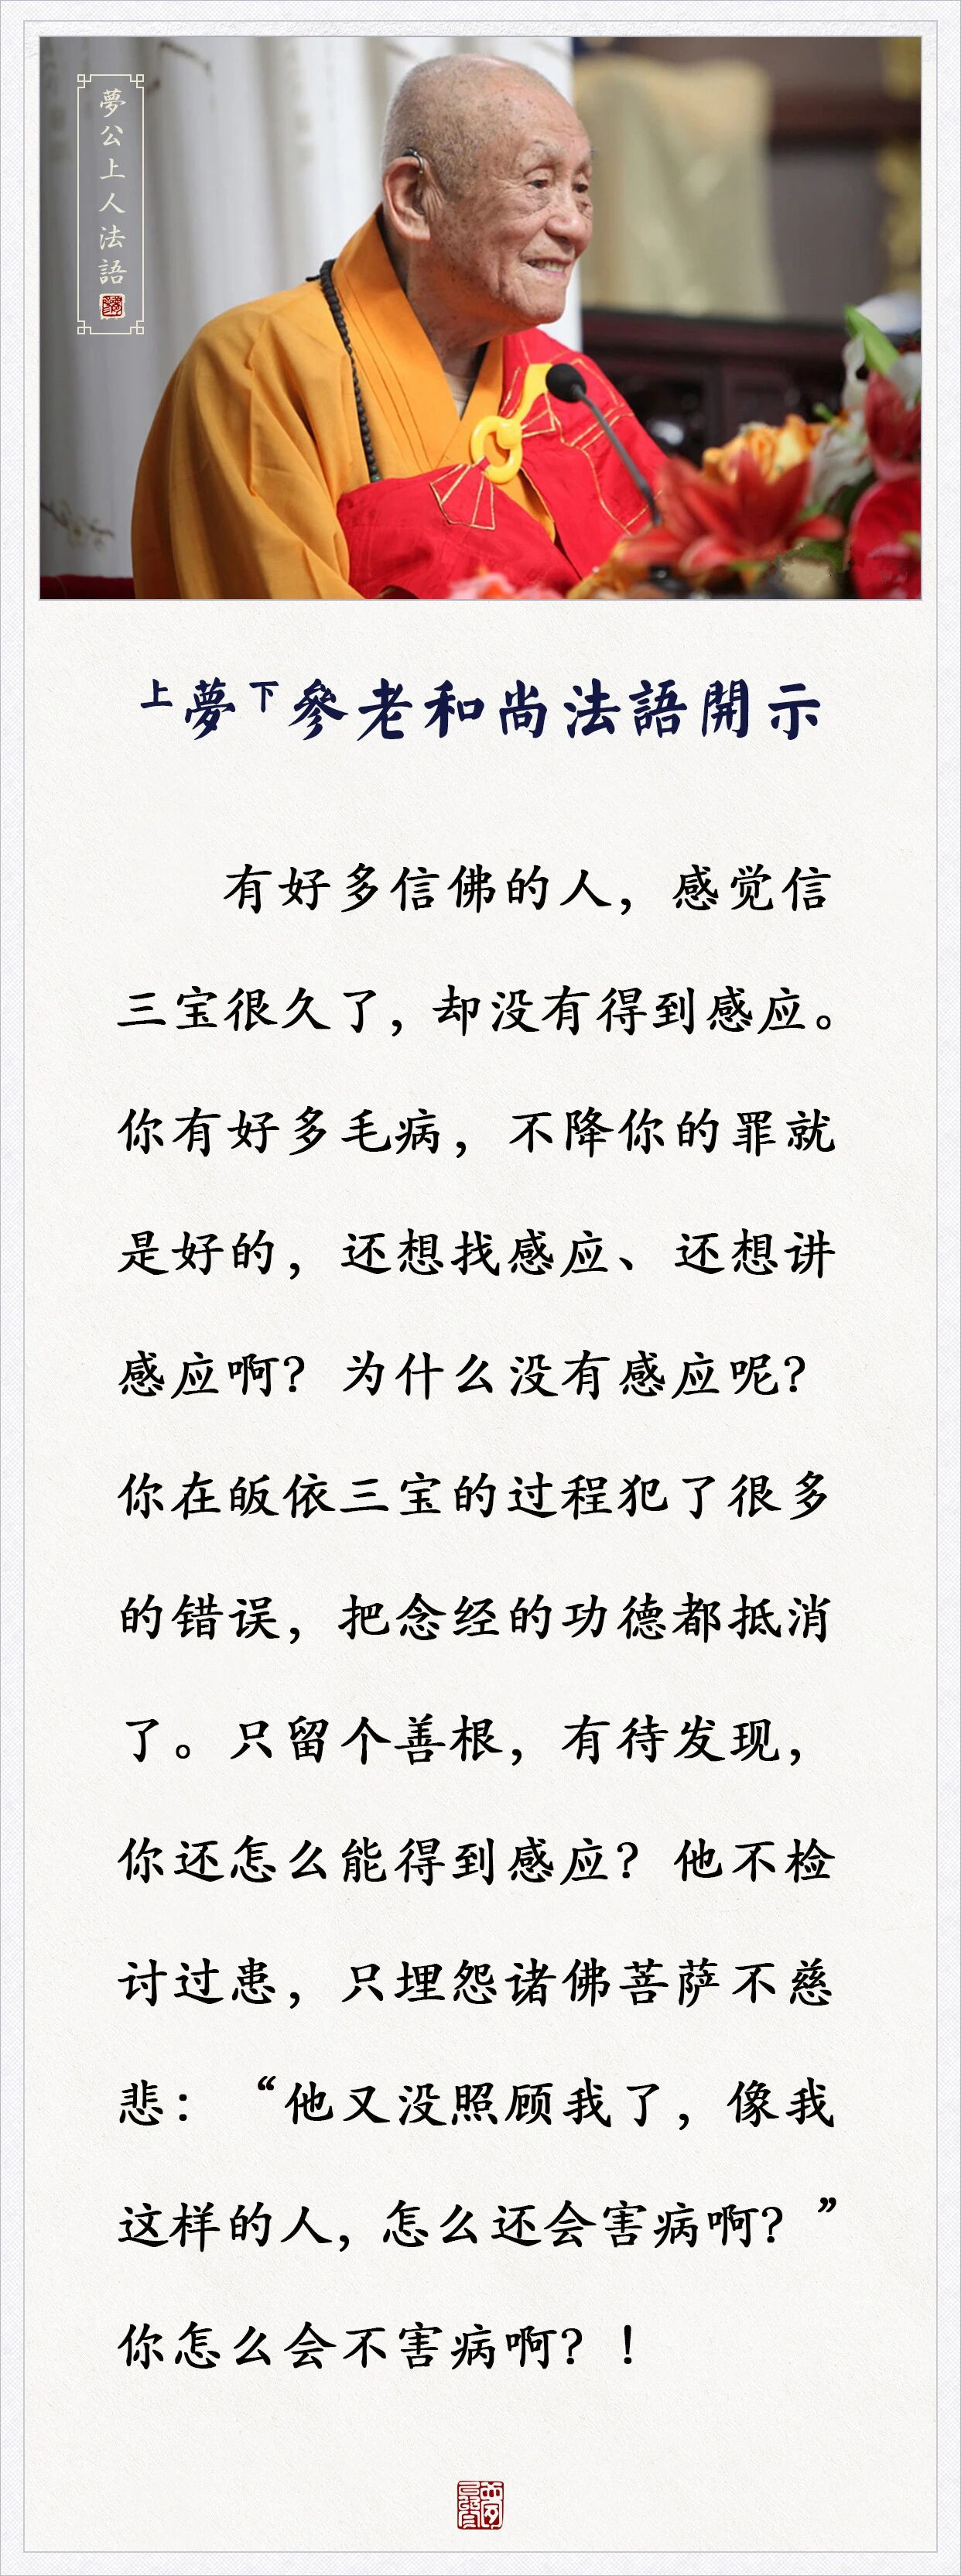 夢公上人法語
上夢下參老和尚法語開示
有好多信佛的人，感觉信
三宝很久了，却没有得到感应。
你有好多毛病，不降你的罪就
是好的，还想找感应、还想讲
感应啊？为什么没有感应呢？
你在皈依三宝的过程犯了很多
的错误，把念经的功德都抵消
了。只留个善根，有待发现，
你还怎么能得到感应？他不检
讨过患，只埋怨诸佛菩萨不慈
悲：“他又没照顾我了，像我
这样的人，怎么还会害病啊？”
你怎么会不害病啊？！